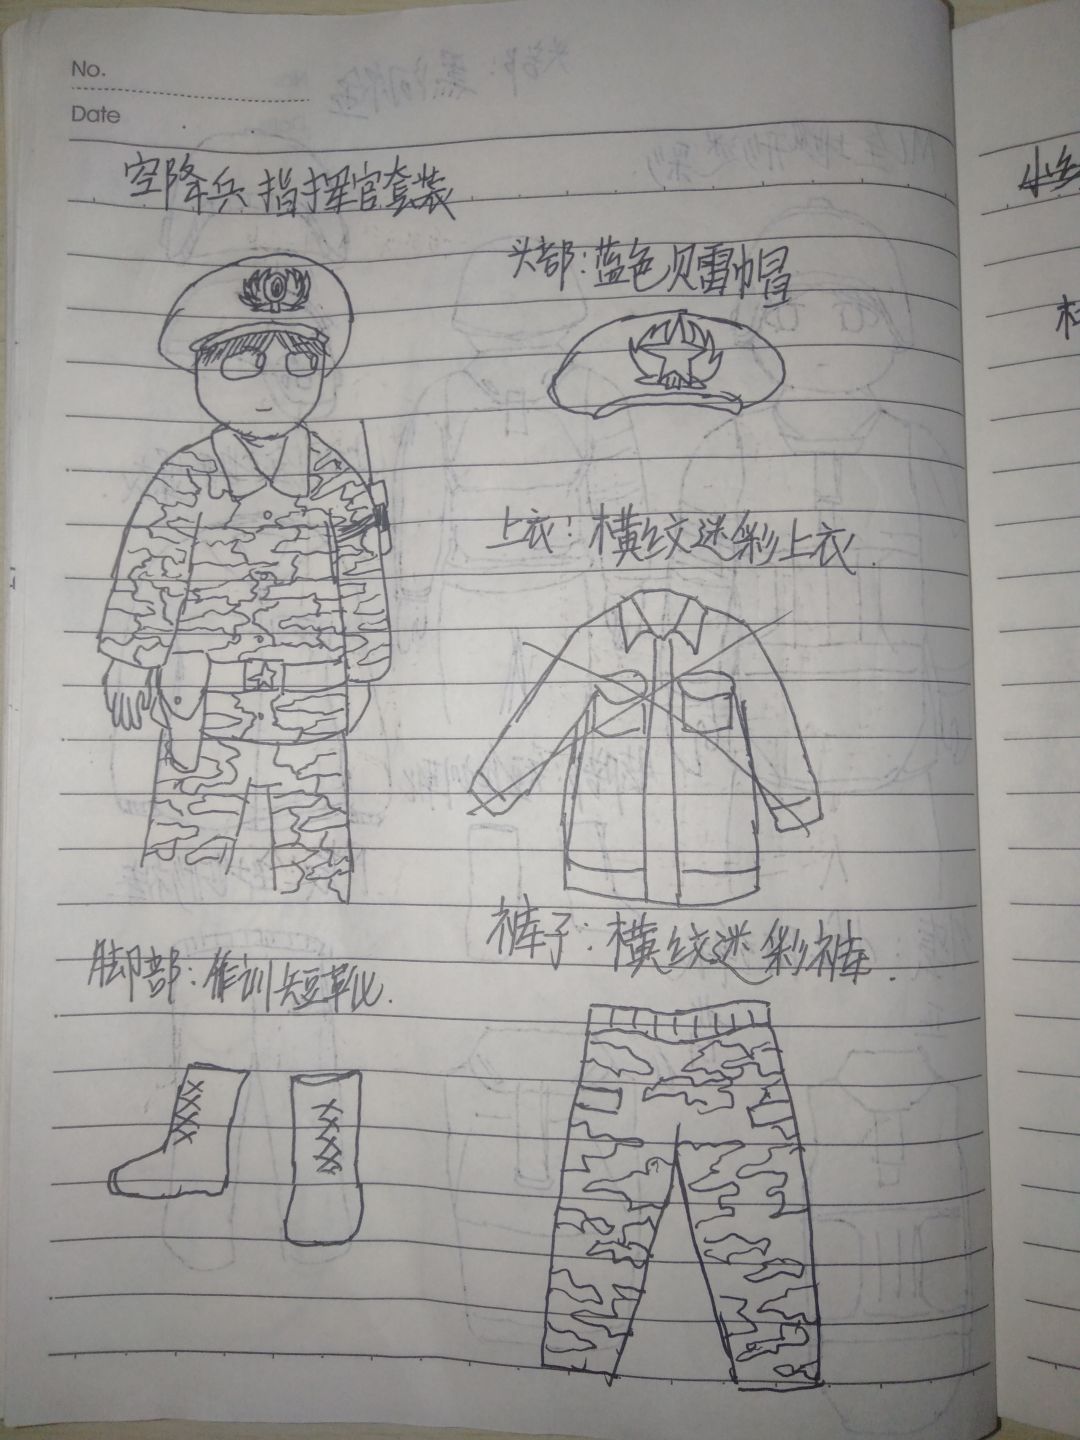 No.
Date
空降兵指挥官套装
头部:蓝色贝雷帽
上衣:横纹迷彩上衣.
裤子:横纹迷彩裤.
脚部:作训短革靴.